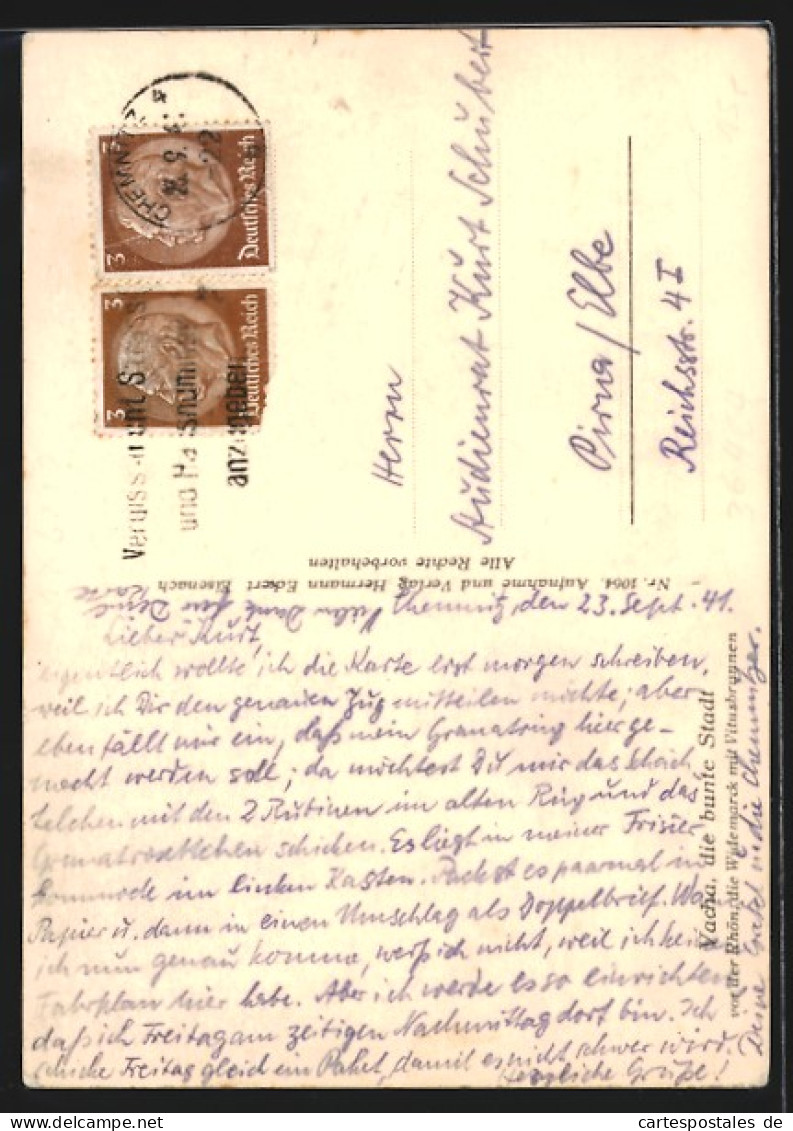 CHEMNITZ
3
Deutsches Reich
3
Deutsches Reich
Vergiss nicht Strasse
und Hausnummer
anzugeben
Herrn
Studienrat Kurt Schubert
Pirna/Elbe
Reichsstr. 4 I
Nr. 1064. Aufnahme und Verlag Hermann Eckert Eisenach
Alle Rechte vorbehalten
Vacha, die bunte Stadt
vor der Rhön, die Widemarck mit Vitusbrunnen
Vielen Dank für Deine Karte
Chemnitz den 23. Sept. 41.
Lieber Kurt,
eigentlich wollte ich die Karte erst morgen schreiben,
weil ich Dir den genauen Zug mitteilen möchte; aber
eben fällt mir ein, daß mein Granatring hier ge-
macht werden soll; da möchtest Du mir das Schäch
telchen mit den 2 Rubinen im alten Ring und das
schicken. Es liegt in meiner Frisier
kommode im linken Kasten. Packst es paarmal in
Papier u. dann in einen Umschlag als Doppelbrief. Wann
ich nun genau komme, weiß ich nicht, weil ich keinen
Fahrplan hier habe. Aber ich werde es so einrichten
daß ich Freitag am zeitigen Nachmittag dort bin. Ich
schicke Freitag gleich ein Paket, damit es nicht schwer wird.
Herzliche Grüße!
Deine und die Chemnitzer.
cartespostales.de
www.delcampe.net